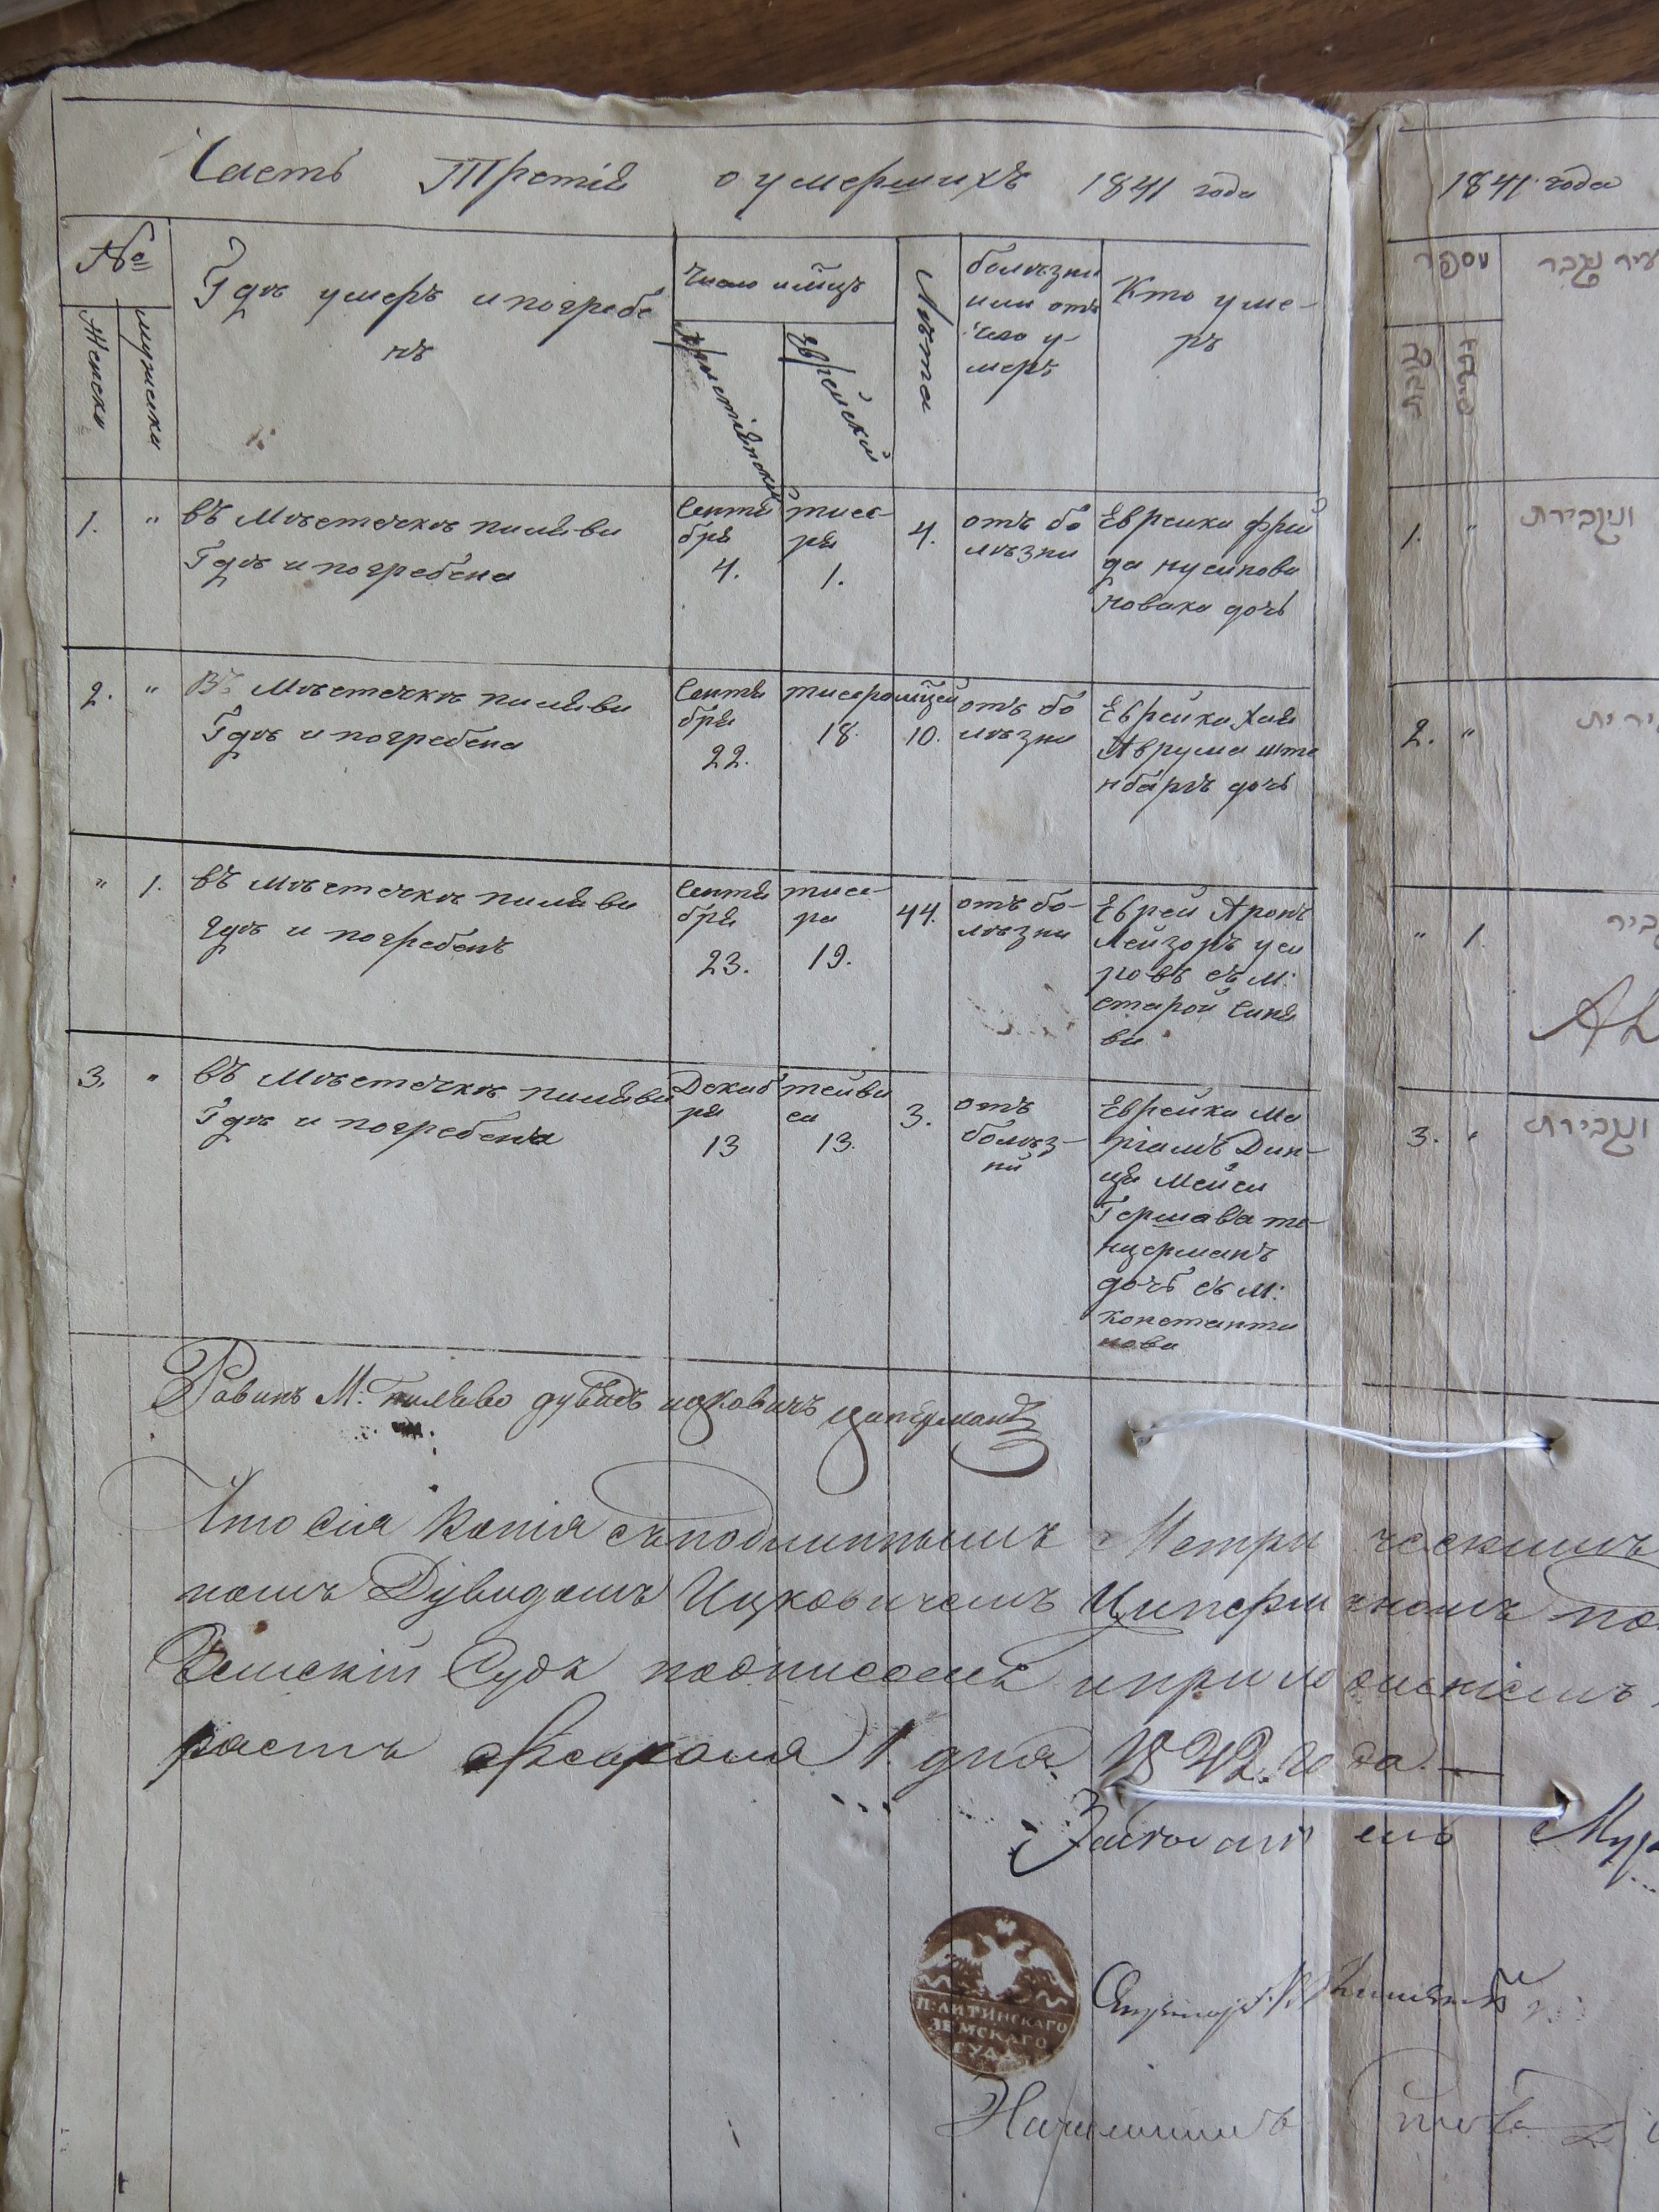 Часть Третія о умершихъ 1841 года
1841 года
№
Женски
мужески
Гдѣ умеръ и погребе
нъ
Число и мцъ
христіянский
Еврейский
Лѣта
болѣзни
или отъ
чего у-
меръ
Кто уме-
ръ
מספר
1.
"
въ Мѣстечкѣ пиляви
Гдѣ и погребена
Сентя
бря
4.
тисе-
ря
1.
4.
отъ бо
лѣзни
Еврейка фрей
да нусинова
новака дочь
1.
"
2.
"
Въ Мѣстечкѣ пилява
Гдѣ и погребена
Сентя
бря
22.
тисеро мцей
18.
10.
отъ бо
лѣзни
Еврейка Хая
Аврума ште
нбаргъ дочь
2.
"
"
1.
въ мѣстечкѣ пиляви
гдѣ и погребенъ
Сентя
бря
23.
тисе-
ри
19.
44.
отъ бо-
лѣзни
Еврей Аронъ
Лейзоръ уси
ровъ съ м:
старой Синя
ви
"
1.
3.
"
въ Мѣстечкѣ пиляви
Гдѣ и погребена
Декаб
ря
13
тейви
си
13.
3.
отъ
болѣз-
ни
Еврейка Ма
ріамъ Дин-
ця Мейси
Гершава те-
нцерманъ
дочь съ м:
константи
нова
3.
Равинъ М: Пилява дувидъ ицковичъ циперманъ
Что Сия Копія съ подлиннымъ Метрическимъ
номъ Дувидомъ Ицковичемъ Циперманомъ по
Земскій Судъ подписомъ и приложеніемъ
растъ Февраля 1 дня 1842. года.
Засѣдатель
П: ЛИТИНСКАГО
ЗЕМСКАГО
СУДА